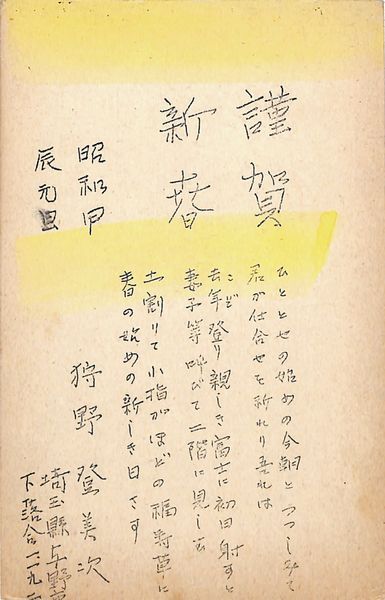 謹賀
新春
ひととせの始めの今朝とつつしみて
君が仕合せを祈れり吾れは
こぞ
去年登り親しき富士に初日射すと
妻子等呼びて二階に見しむ
土割りて小指がほどの福寿草に
春の始めの新しき日さす
昭和甲
辰元旦
狩野登美次
埼玉縣与野
下落合一一九